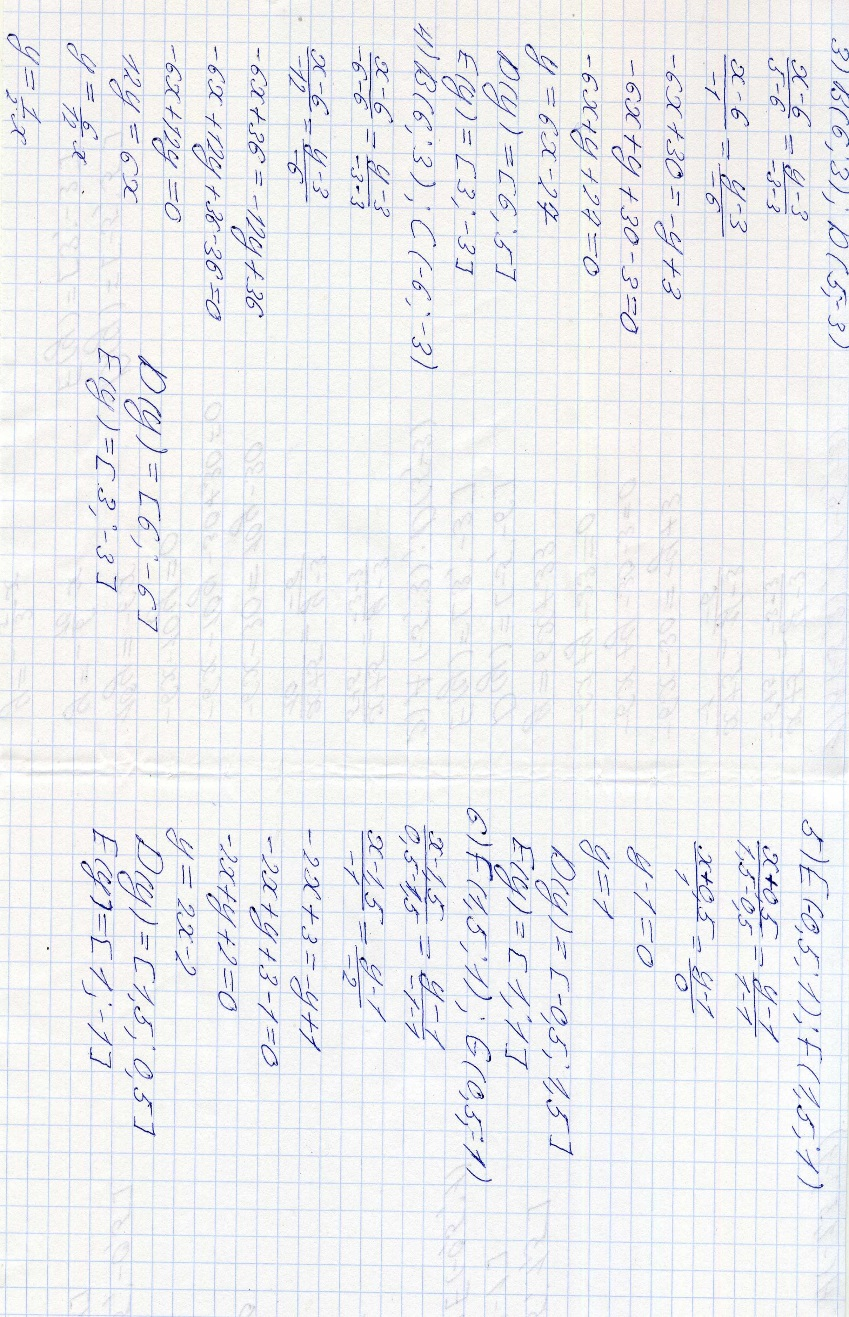 3) B(6; 3); D(5;-3)
x-6/5-6 = y-3/-3-3
x-6/-1 = y-3/-6
-6x+30=-y+3
-6x+y+30-3=0
-6x+y+27=0
y=6x-27
D(y)=[6; 5]
E(y)=[3;-3]
4) B(6; 3); C(-6;-3)
x-6/-6-6 = y-3/-3-3
x-6/-12 = y-3/-6
-6x+36=-12y+36
-6x+12y+36-36=0
-6x+12y=0
12y=6x
y=6/12 x
y=1/2 x
D(y)=[6;-6]
E(y)=[3;-3]
5) E(-0,5; 1); F(1,5; 1)
x+0,5/1,5-0,5 = y-1/1-1
x+0,5/1 = y-1/0
y-1=0
y=1
D(y)=[-0,5; 1,5]
E(y)=[1; 1]
6) F(1,5; 1); G(0,5;-1)
x-1,5/0,5-1,5 = y-1/-1-1
x-1,5/-1 = y-1/-2
-2x+3=-y+1
-2x+y+3-1=0
-2x+y+2=0
y=2x-2
D(y)=[1,5; 0,5]
E(y)=[1;-1]